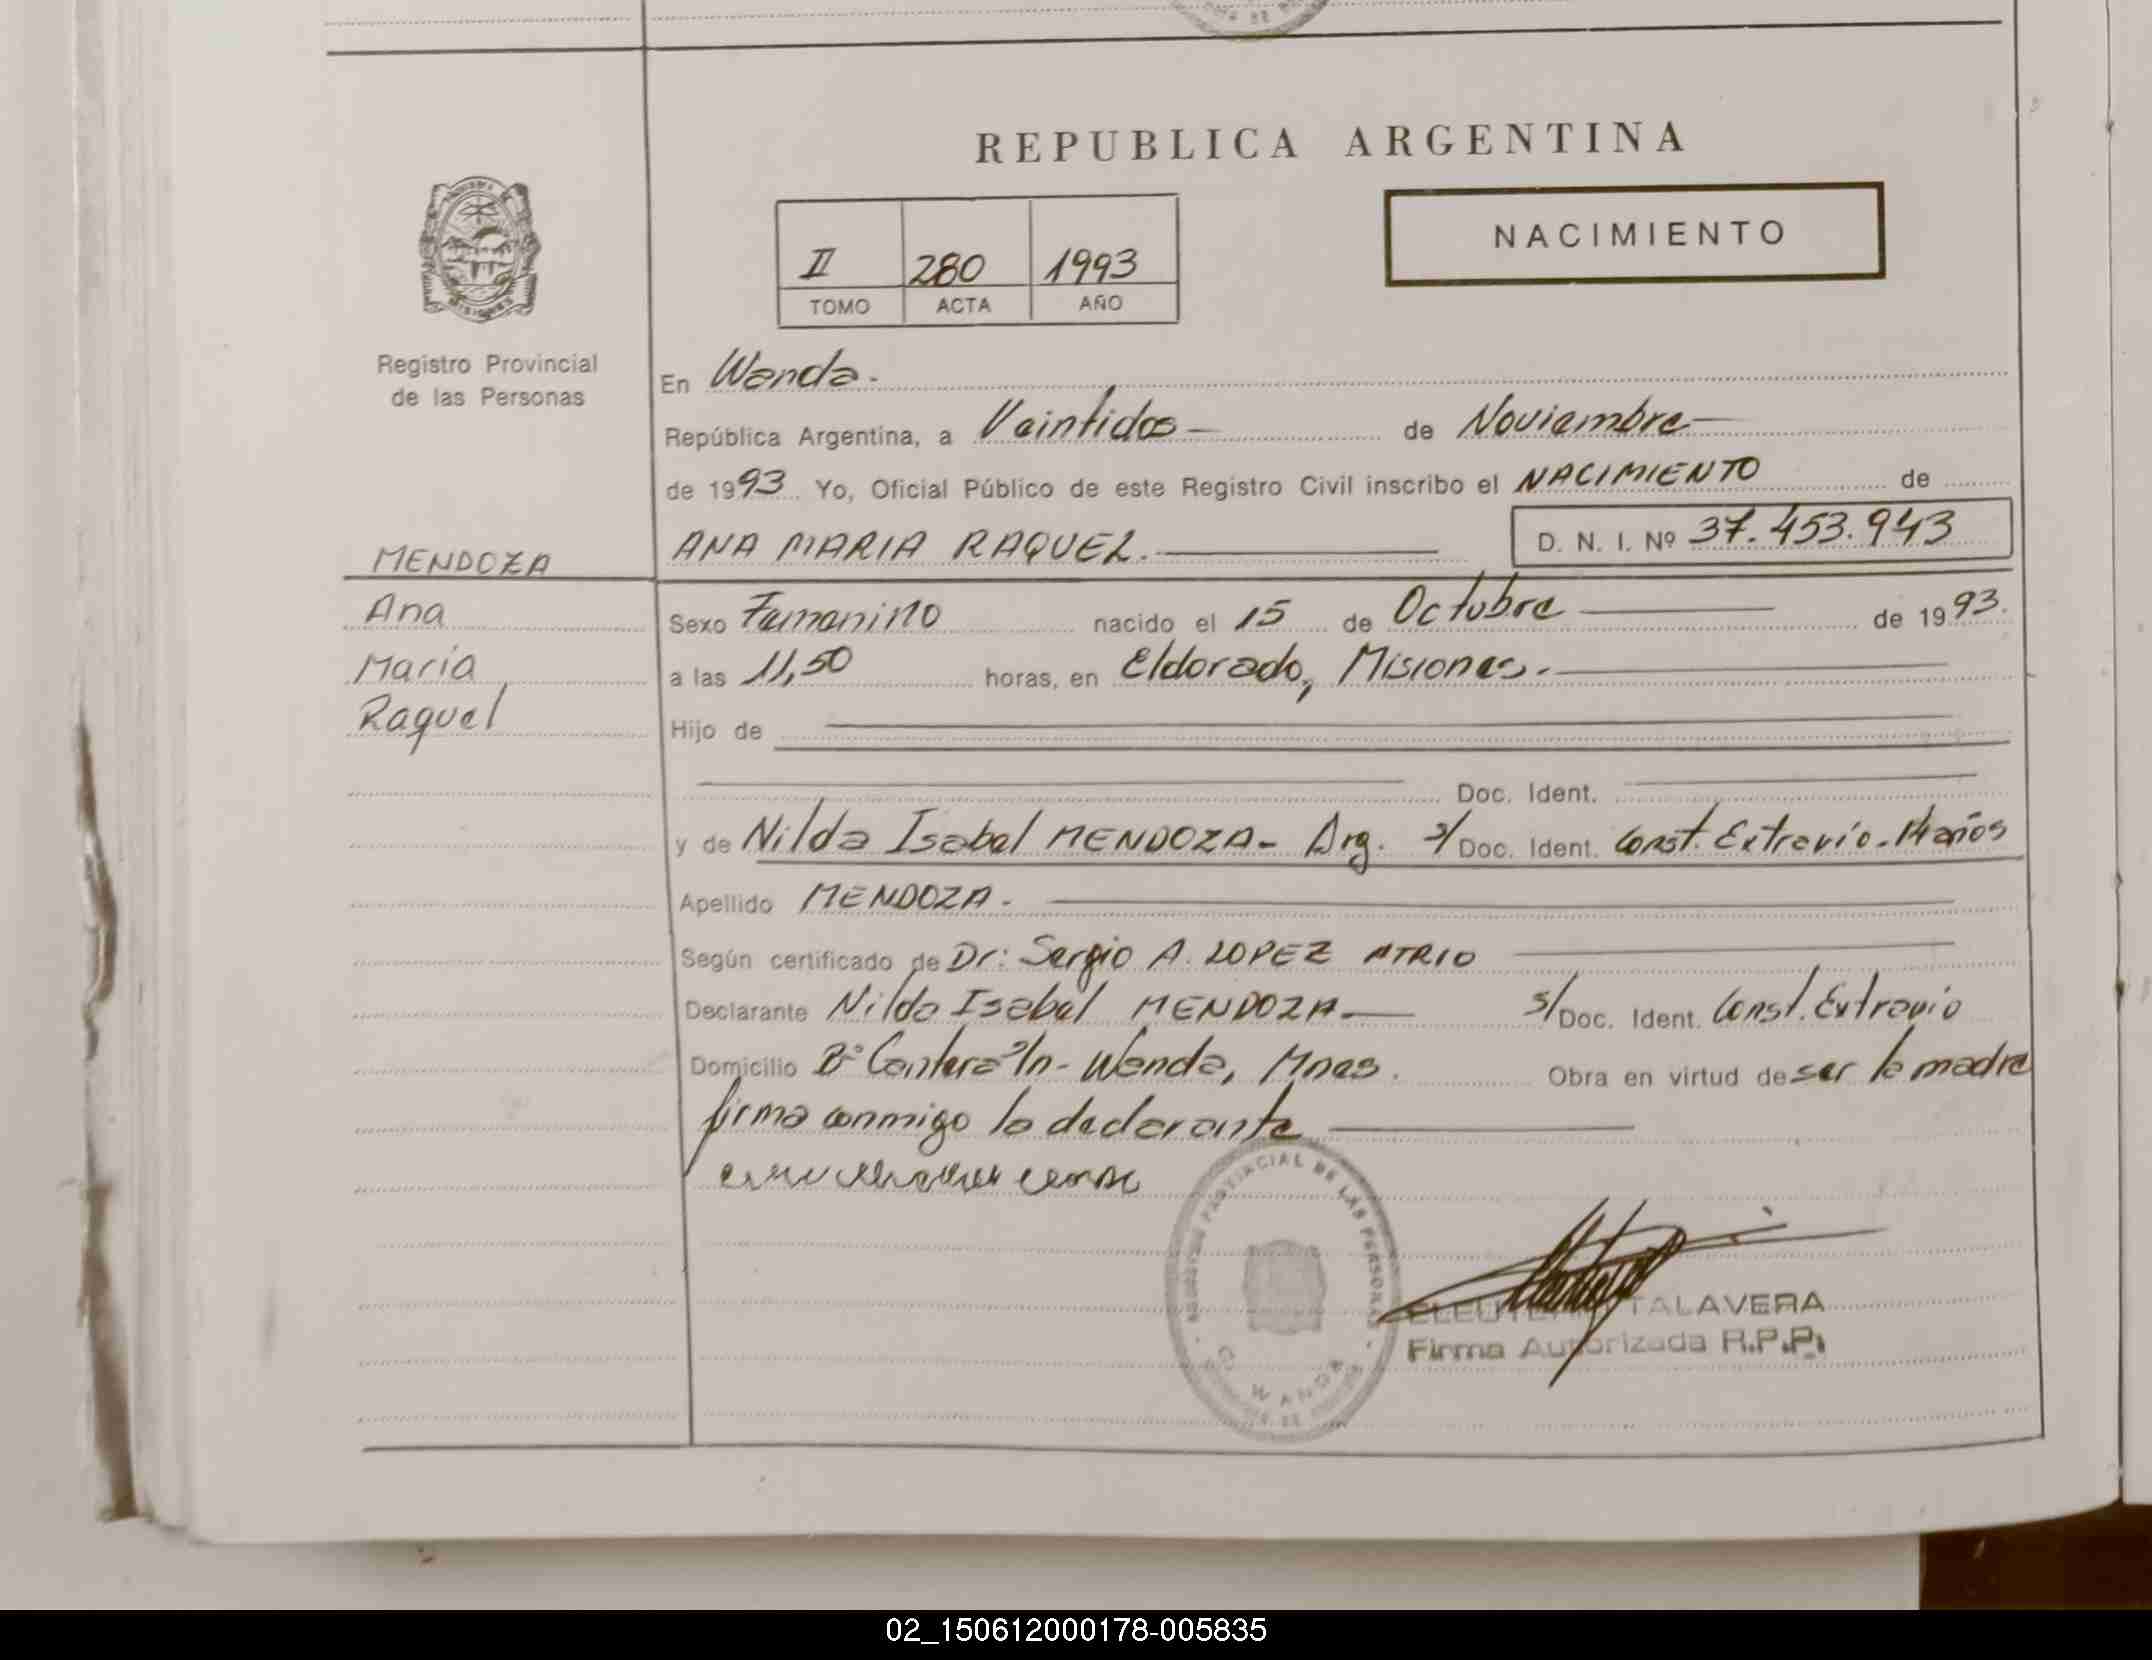 REPUBLICA ARGENTINA
NACIMIENTO
II 280 1993
TOMO ACTA AÑO
Registro Provincial
de las Personas
En Wanda.
República Argentina, a Veintidos de Noviembre
de 1993. Yo, Oficial Público de este Registro Civil inscribo el NACIMIENTO de
ANA MARIA RAQUEL. D. N. I. Nº 37.453.943
MENDOZA
Ana
Maria
Raquel
Sexo Femenino nacido el 15 de Octubre de 1993.
a las 11,50 horas, en Eldorado, Misiones.
Hijo de
Doc. Ident.
y de Nilda Isabel MENDOZA- Arg. s/Doc. Ident. Const. Extravío. 14 años
Apellido MENDOZA.
Según certificado de Dr: Sergio A. LOPEZ ATRIO
Declarante Nilda Isabel MENDOZA s/Doc. Ident. Const. Extravio
Domicilio Bº Cantera s/n - Wanda, Mnes. Obra en virtud de ser la madre
firma conmigo la declarante
REGISTRO PROVINCIAL DE LAS PERSONAS
WANDA
TALAVERA
Firma Autorizada R.P.P.
02_150612000178-005835